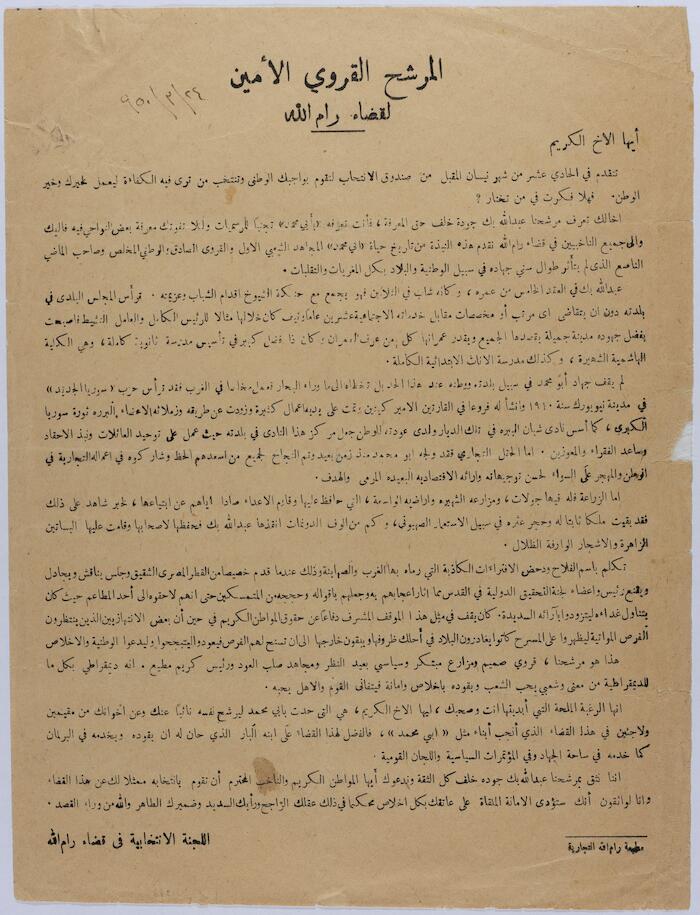 المرشح القروي الأمين
لقضاء رام الله
٢٤/٣/٩٥٠
أيها الاخ الكريم
تتقدم في الحادي عشر من شهر نيسان المقبل من صندوق الانتخاب لتقوم بواجبك الوطني وتنتخب من ترى فيه الكفاءة ليعمل لخيرك وخير
الوطن. فهلا فكرت في من تختار ؟
اخالك تعرف مرشحنا عبدالله بك جودة خلف حق المعرفة ، فأنت تعرفه «بأبي محمد» تجنبًا للرسميات ولئلا تفوتك معرفة بعض النواحي فيه فاليك
والى جميع الناخبين في قضاء رام الله نقدم هذه النبذة من تاريخ حياة «ابي محمد» المجاهد الشعبي الاول والقروي الصادق والوطني المخلص وصاحب الماضي
الناصع الذي لم يتأثر طوال سني جهاده في سبيل الوطنية والبلاد بكل المغريات والتقلبات .
عبدالله بك في العقد الخامس من عمره ، وكأنه شاب في الثلاثين فهو يجمع مع حنكة الشيوخ اقدام الشباب وعزيمته . ترأس المجلس البلدي في
بلدته دون ان يتقاضى اى مرتب أو مخصصات مقابل خدماته الاجتماعية عشرين عاما ونيف كان خلالها مثالا للرئيس الكامل والعامل النشيط فاصبحت
بفضل جهوده مدينة جميلة يقصدها الجميع ويقدر عمرانها كل من عرف العمران وكان ذا فضل كبير في تأسيس مدرسة ثانوية كاملة ، وهي الكلية
الهاشمية الشهيرة ، وكذلك مدرسة الاناث الابتدائية الكاملة .
لم يقف جهاد أبو محمد في سبيل بلدته ووطنه عند هذا الحد بل تخطاه الى ما وراء البحار فعمل مخلصا في الغرب فقد ترأس حزب «سوريا الجديد»
في مدينة نيويورك سنة ١٩١٠ وانشأ له فروعا في القارتين الامير كيتين وتمت على يديه اعمال كثيرة وزودت عن طريقه وزملائه الاعضاء البرره ثورة سوريا
الكبرى ، كما أسس نادى شبان البيره في تلك الديار ولدى عودته للوطن جعل مركز هذا النادى في بلدته حيث عمل على توحيد العائلات ونبذ الاحقاد
وساعد الفقراء والمعوزين . اما الحقل التجاري فقد ولجه ابو محمد منذ زمن بعيد وتم النجاح لجميع من اسعدهم الحظ وشاركوه في اعماله التجارية في
الوطن والمهجر على السواء لحسن توجيهاته وارائه الاقتصاديه البعيده المرمى والهدف .
اما الزراعة فله فيها جولات ، ومزارعه الشهيره واراضيه الواسعة ، التي حافظ عليها وقاوم الاعداء صادا اياهم عن ابتياعها ، لخير شاهد على ذلك
فقد بقيت ملكا ثابتا له وحجر عثره في سبيل الاستعمار الصهيوني ، وكم من الوف الدونمات انقذها عبدالله بك فحفظها لاصحابها وقامت عليها البساتين
الزاهرة والاشجار الوارفة الظلال .
تكلم باسم الفلاح ودحض الافتراءات الكاذبة التي رماه بها الغرب والصهاينة وذلك عندما قدم خصيصا من القطر المصرى الشقيق وجلس يناقش ويجادل
ويقنع رئيس واعضاء لجنة التحقيق الدولية في القدس مما اثار اعجابهم به وجعلهم باقواله وحججه من المتمسكين حتى انهم لاحقوه الى أحد المطاعم حيث كان
يتناول غداءه ليتزودوا بآرائه السديدة. كان يقف في مثل هذا الموقف المشرف دفاعا عن حقوق المواطن الكريم في حين أن بعض الانتهازيين الذين ينتظرون
الفرص المواتية ليظهروا على المسرح كانوا يغادرون البلاد في أحلك ظروفها ويبقون خارجها الى ان تسنح لهم الفرص فيعودوا ليتبجحوا وليدعوا الوطنية والاخلاص
هذا هو مرشحنا ، قروي صميم ومزارع مبتكر وسياسي بعيد النظر ومجاهد صلب العود ورئيس كريم مطيع . انه ديمقراطي بكل ما
للديمقراطية من معنى وشعبي يحب الشعب ويقوده باخلاص وامانة فيتفانى القوم والاهل بحبه .
انها الرغبة الملحة التي أبديتها انت وصحبك ، ايها الاخ الكريم ، هي التى حدت بابي محمد ليرشح نفسه نائبًا عنك وعن اخوانك من مقيمين
ولاجئين في هذا القضاء الذي انجب أبناء مثل «ابي محمد» ، فالفضل لهذا القضاء على ابنه البار الذي حان له ان يقوده ويخدمه في البرلمان
كما خدمه في ساحة الجهاد وفي المؤتمرات السياسية واللجان القومية .
اننا نثق بمرشحنا عبدالله بك جوده خلف كل الثقة وندعوك أيها المواطن الكريم والناخب المحترم أن تقوم بانتخابه ممثلا لك عن هذا القضاء
وانا لواثقون أنك ستؤدى الامانة الملقاة على عاتقك بكل اخلاص محكما في ذلك عقلك الراجح ورأيك السديد وضميرك الطاهر والله من وراء القصد .
اللجنة الانتخابية فى قضاء رام الله
مطبعة رام الله التجارية